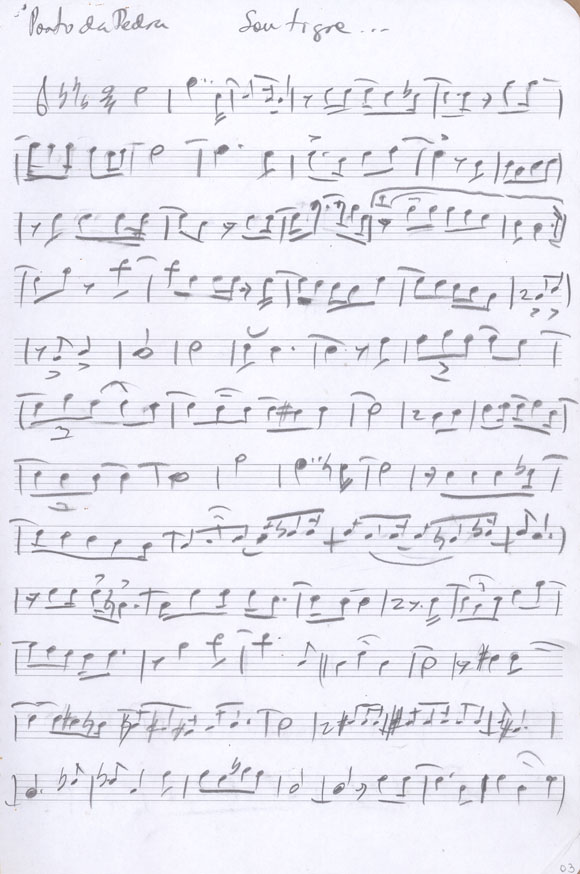 Porto da Pedra Sou tigre...
03